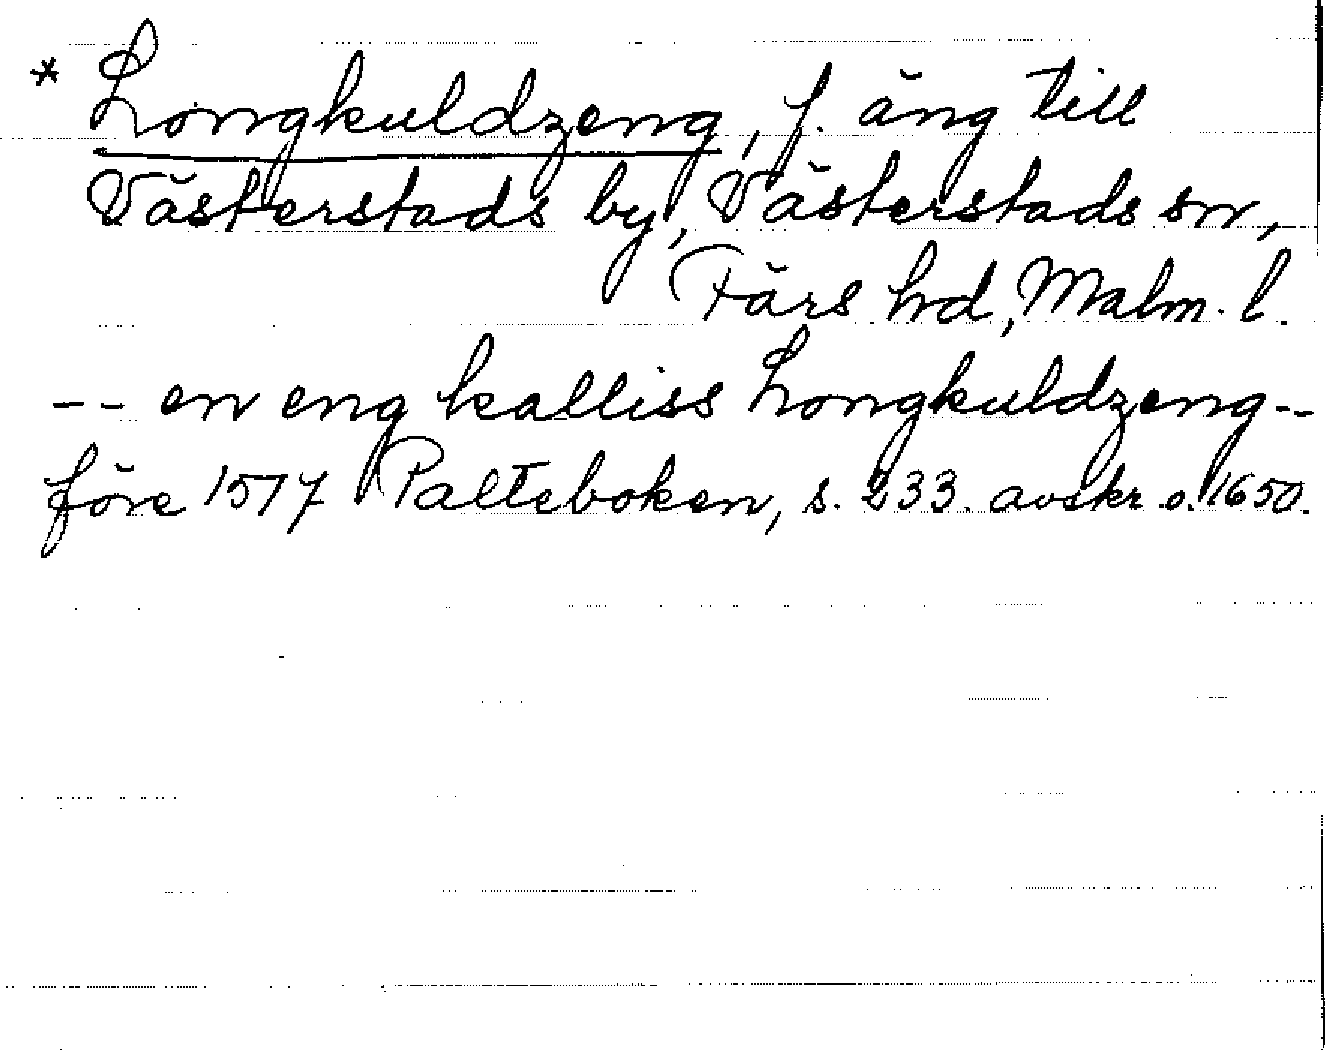 * Longkuldzeng, f. äng till
Västerstads by, Västerstads sn,
Färs hd, Malm. l.
-- en eng kalliss Longkuldzeng --
före 1517 Palteboken, s. 233. avskr. o. 1650.